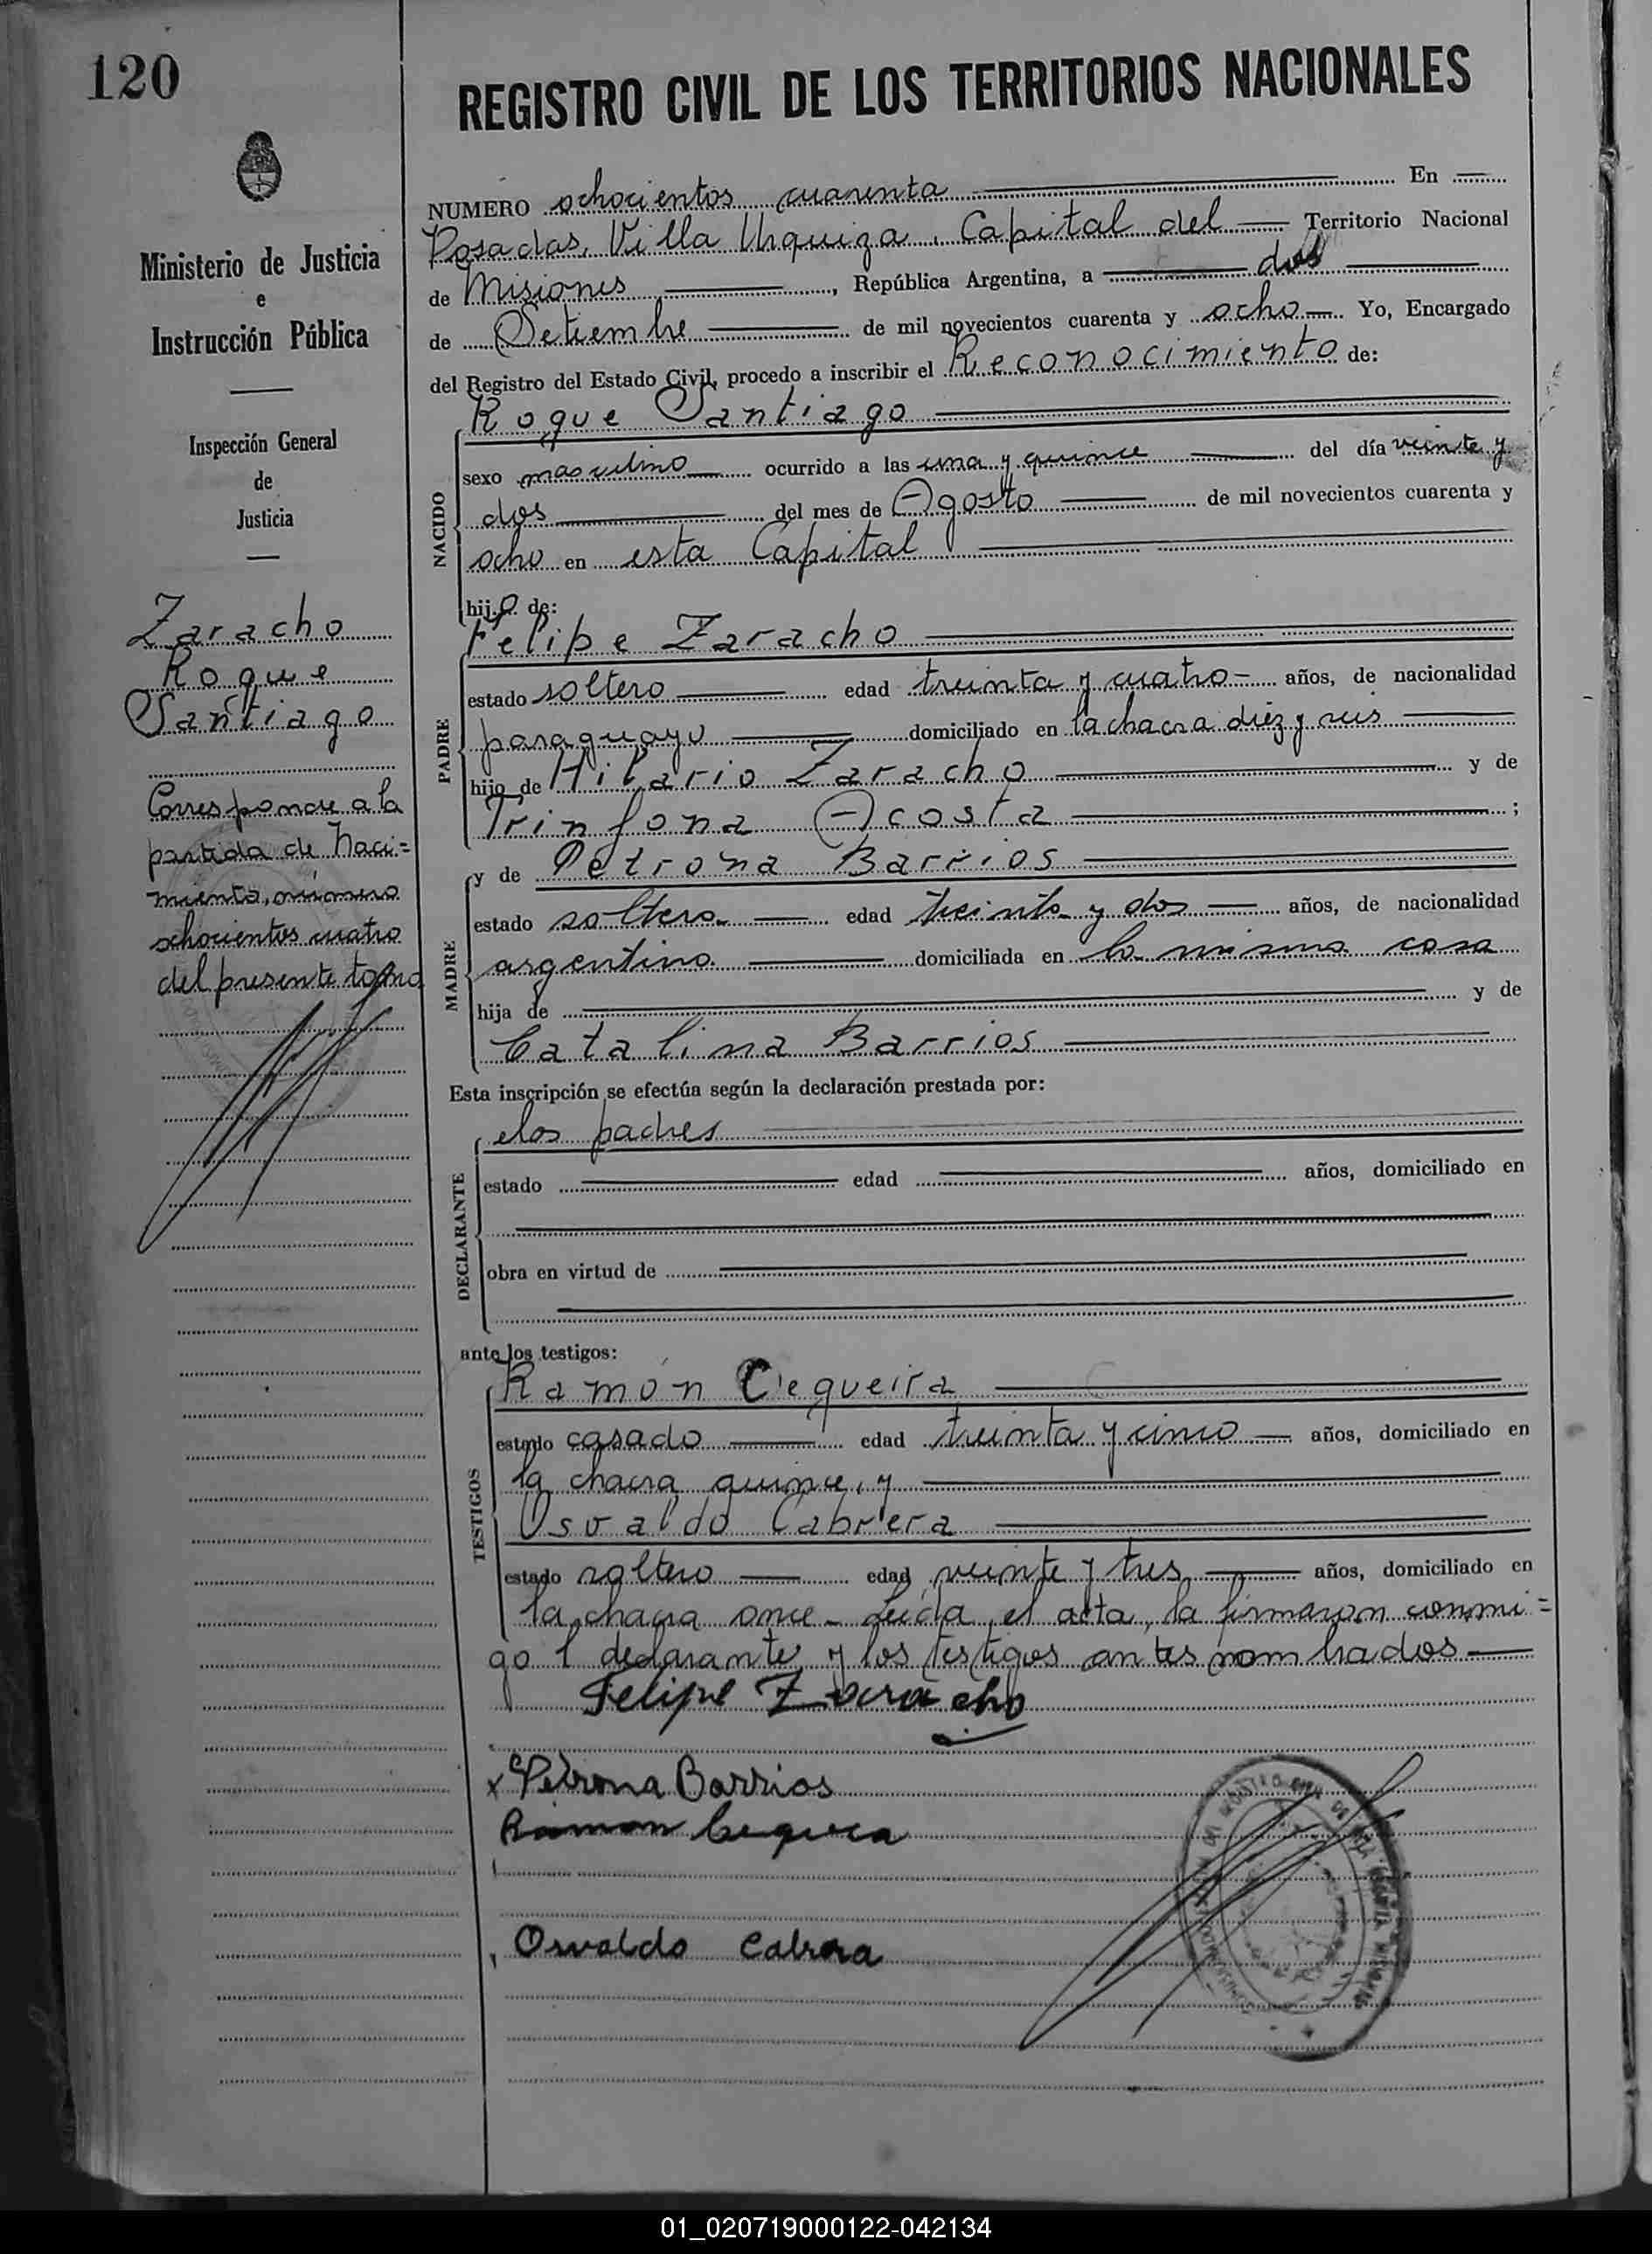 120
REGISTRO CIVIL DE LOS TERRITORIOS NACIONALES
Ministerio de Justicia
e
Instrucción Pública
Inspección General
de
Justicia
Zaracho
Roque
Santiago
Corresponde a la
partida de Naci=
miento, número
ochocientos cuatro
del presente tomo
NUMERO ochocientos cuarenta En
Posadas, Villa Urquiza, Capital del Territorio Nacional
de Misiones, República Argentina, a dos
de Setiembre de mil novecientos cuarenta y ocho Yo, Encargado
del Registro del Estado Civil, procedo a inscribir el Reconocimiento de:
Roque Santiago
NACIDO
sexo masculino ocurrido a las una y quince del día veinte y
dos del mes de Agosto de mil novecientos cuarenta y
ocho en esta Capital
hijo de:
Felipe Zaracho
PADRE
estado soltero edad treinta y cuatro años, de nacionalidad
paraguayo domiciliado en la chacra diez y seis
hijo de Hilario Zaracho y de
Trinfona Acosta ;
y de Petrona Barrios
MADRE
estado soltera edad treinta y dos años, de nacionalidad
argentina domiciliada en la misma casa
hija de y de
Catalina Barrios
Esta inscripción se efectúa según la declaración prestada por:
los padres
DECLARANTE
estado edad años, domiciliado en
obra en virtud de
ante los testigos:
Ramón Cequeira
TESTIGOS
estado casado edad treinta y cinco años, domiciliado en
la chacra quince, y
Osvaldo Cabrera
estado soltero edad veinte y tres años, domiciliado en
la chacra once - Leída el acta, la firmaron conmi=
go l declarante y los testigos antes nombrados
Felipe Zaracho
x Petrona Barrios
Ramon
Osvaldo Cabrera
01_020719000122-042134